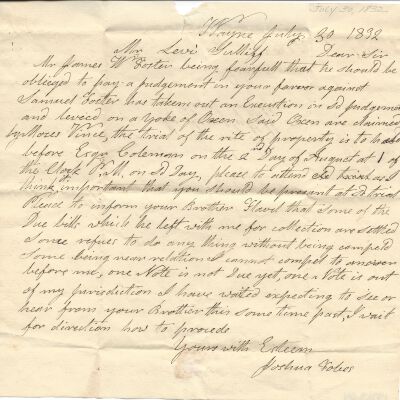 July 30, 1832
Wayne July 30 1832
Mr Levi Sutliff Dear Sir
Mr James W Foster being fearfull that he should be
obliged to pay a judgement in your favour against
Samuel Foster has taken out an Execution on Sd judgement
and levied on a Yoke of Oxen Said Oxen are claimed
by Moses Vince, the trial of the rite of property is to be had
before Esqr Coleman on the 2d Day of August at 1 of
the Clock P.M. on Sd Day, please to attend as I
think important that you should be present at Sd trial
Please to inform your Brother Flavel that some of the
Due bills which he left with me for collection are Settled
Some refuse to do any thing without being compeld
Some being near relation I cannot compel to answer
before me, one Note is not Due yet, one Note is out
of my jurisdiction I have waited expecting to see or
hear from your Brother this some time past, I wait
for direction how to procede
Yours with Esteem
Joshua